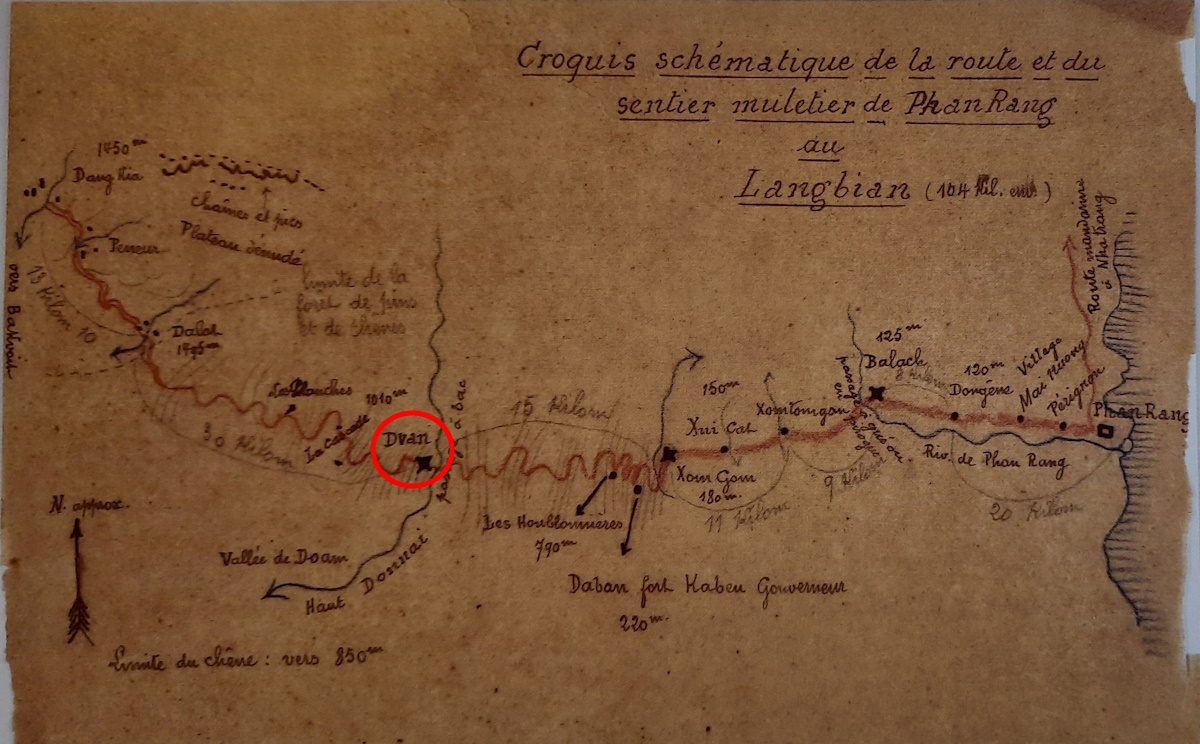 Croquis schématique de la route et du
sentier muletier de PhanRang
au
Langbian (104 Kil. env.)
1450m
Dang Kia
chaînes et pics
Plateau dénudé
Peneur
limite de la
forêt de pins
et de chênes
13 Kilom
10
Dalat
1495m
Les Planches
1010m
La cascade
30 Kilom
Dvan
à bac
15 Kilom
Les Houblonnières
790m
Daban fort Kabeu Gouverneur
220m.
Vallée de Doam
Haut Donnai
N. approx.
Limite du chêne : vers 850m
150m
Xui Cat
Xom Gom
180m.
11 Kilom
Xomtomgon
9 Kilom
125m
Balach
120m
Dongène
Village
Mai nuong
Pérignon
PhanRang
Riv. de Phan Rang
20 Kilom
Route mandarine
à Nha trang